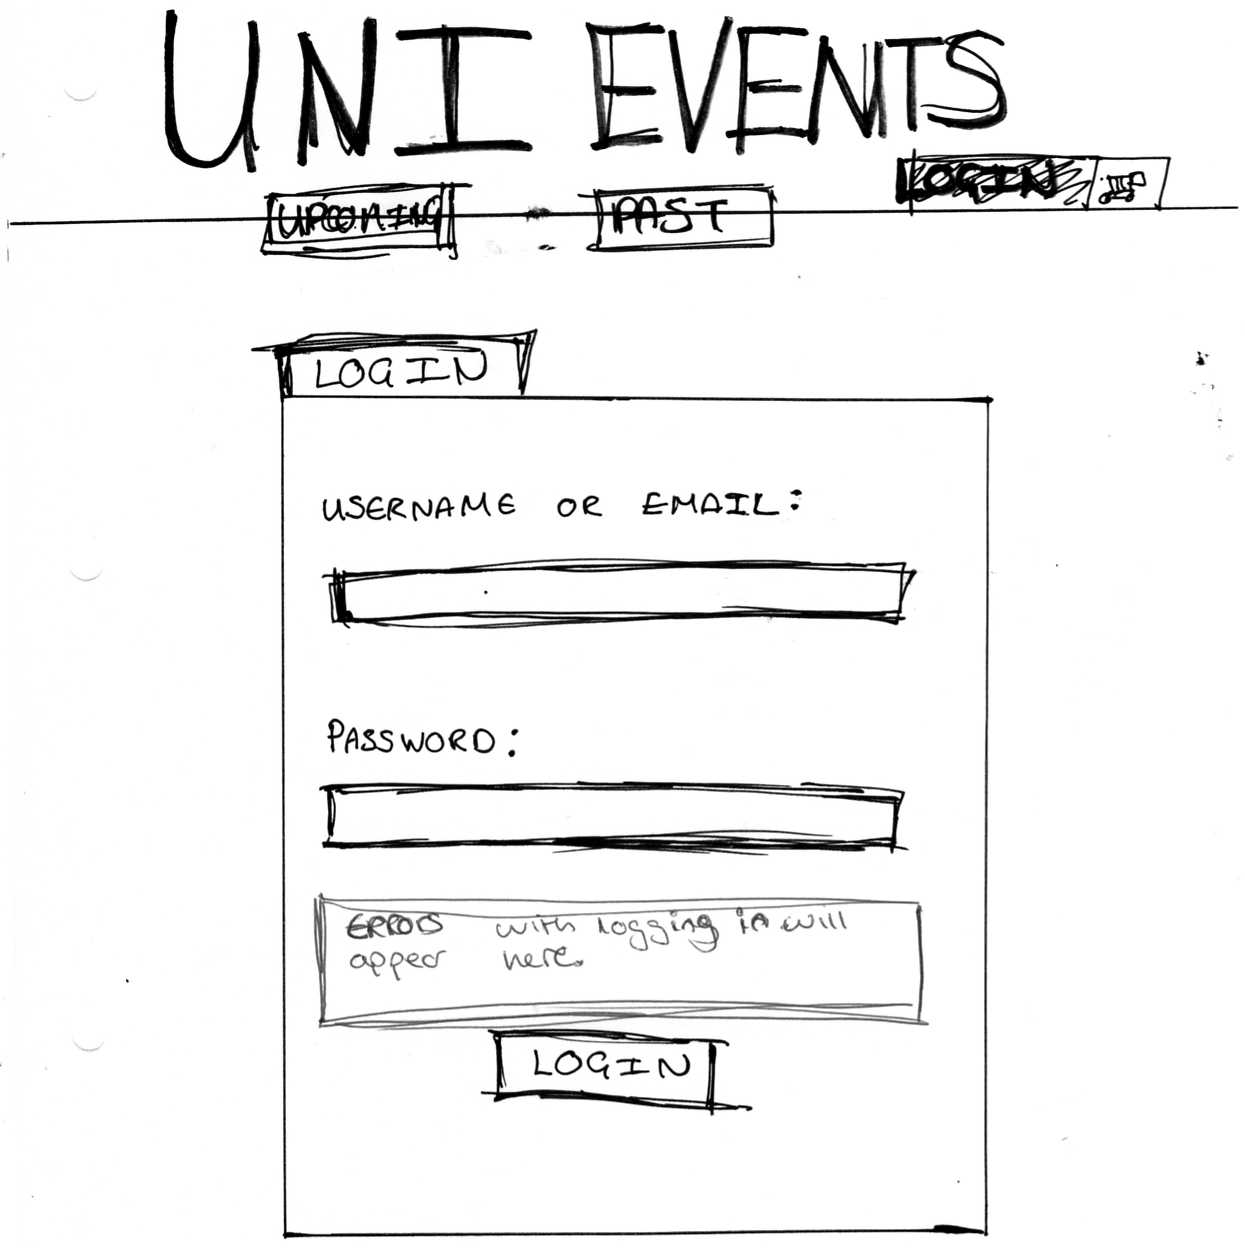 UNI EVENTS
LOGIN
UPCOMING PAST
LOGIN
USERNAME OR EMAIL:
PASSWORD:
ERRORS with logging in will
appear here.
LOGIN